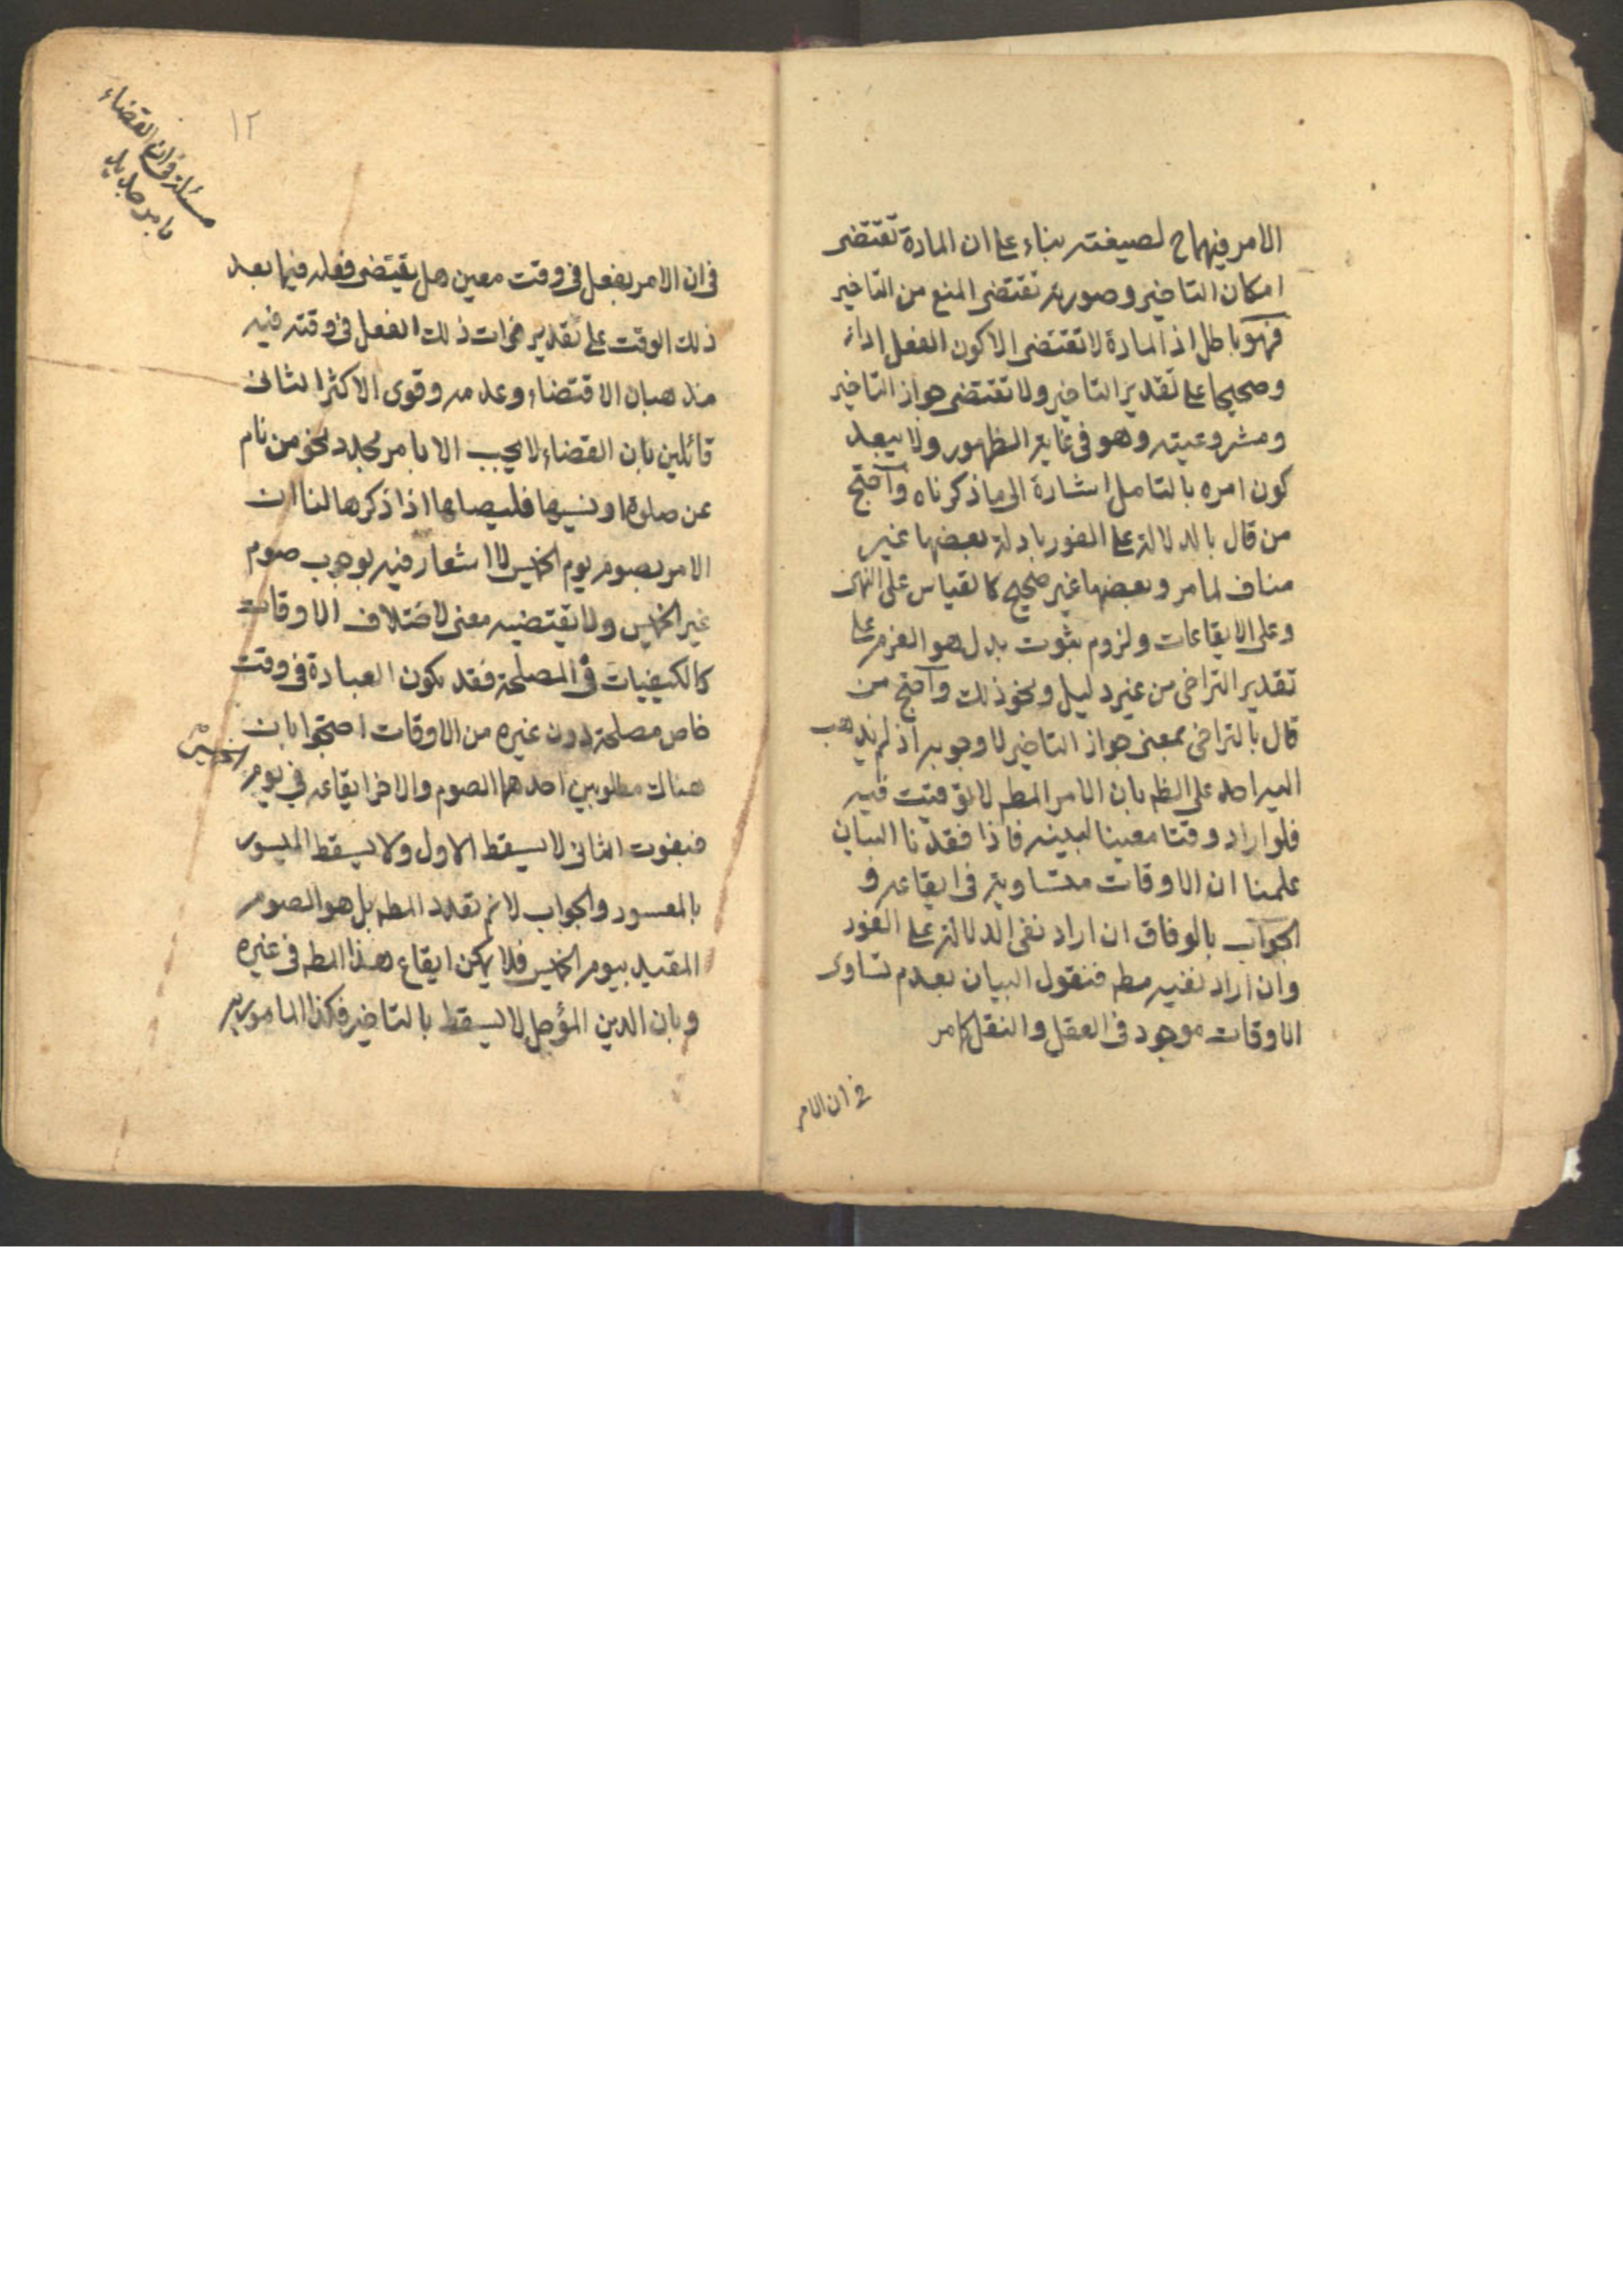 الامر فيهما ح لصيغته بناء على ان المادة تقتضى
امكان التاخير وصورته تقتضى المنع من التاخير
فهو باطل اذ المادة لا تقتضى الا كون الفعل اداء
وصحيحا على تقدير التاخير ولا تقتضى جواز التاخير
ومشروعيته وهو فى غاية الظهور ولا يبعد
كون امره بالتامل اشارة الى ما ذكرناه واحتج
من قال بالدلالة على الفور بادلة بعضها غير
مناف لما مر وبعضها غير صحيح كالقياس على النهى
وعلى الايقاعات ولزوم ثبوت بدل هو العزم على
تقدير التراخى من غير دليل ونحو ذلك واحتج من
قال بالتراخى بمعنى جواز التاخير لا وجوبه اذ لم يذهب
اليه احد على الظ بان الامر المطم لا توقيت فيه
فلو اراد وقتا معينا لبينه فاذا فقدنا البيان
علمنا ان الاوقات متساوية فى ايقاعه و
الجواب بالوفاق ان اراد نفى الدلالة على الفور
وان اراد نفيه مطم فنقول البيان بعدم تساوى
الاوقات موجود فى العقل والنقل كما مر
فى ان الامر
١٢
مسئلة فى ان القضاء
بامر جديد
فى ان الامر بفعل فى وقت معين هل يقتضى فعله فيما بعد
ذلك الوقت على تقدير فوات ذلك الفعل فى وقته فيه
مذهبان الاقتضاء وعدمه وقوى الاكثر الثانى
قائلين بان القضاء لا يجب الا بامر مجدد نحو من نام
عن صلوة او نسيها فليصلها اذا ذكرها لنا ان
الامر بصوم يوم الخميس لا اشعار فيه بوجوب صوم
غير الخميس ولا تقتضيه معنى لاختلاف الاوقات
كالكيفيات فى المصلحة فقد يكون العبادة فى وقت
خاص مصلحة دون غيره من الاوقات احتجوا بان
هناك مطلوبين احدهما الصوم والاخر ايقاعه فى يوم الخميس
فبفوت الثانى لا يسقط الاول ولا يسقط الميسور
بالمعسور والجواب لا نم تعدد المطم بل هو الصوم
المقيد بيوم الخميس فلا يمكن ايقاع هذا المطم فى غيره
وبان الدين المؤجل لا يسقط بالتاخير فكذا المامور به